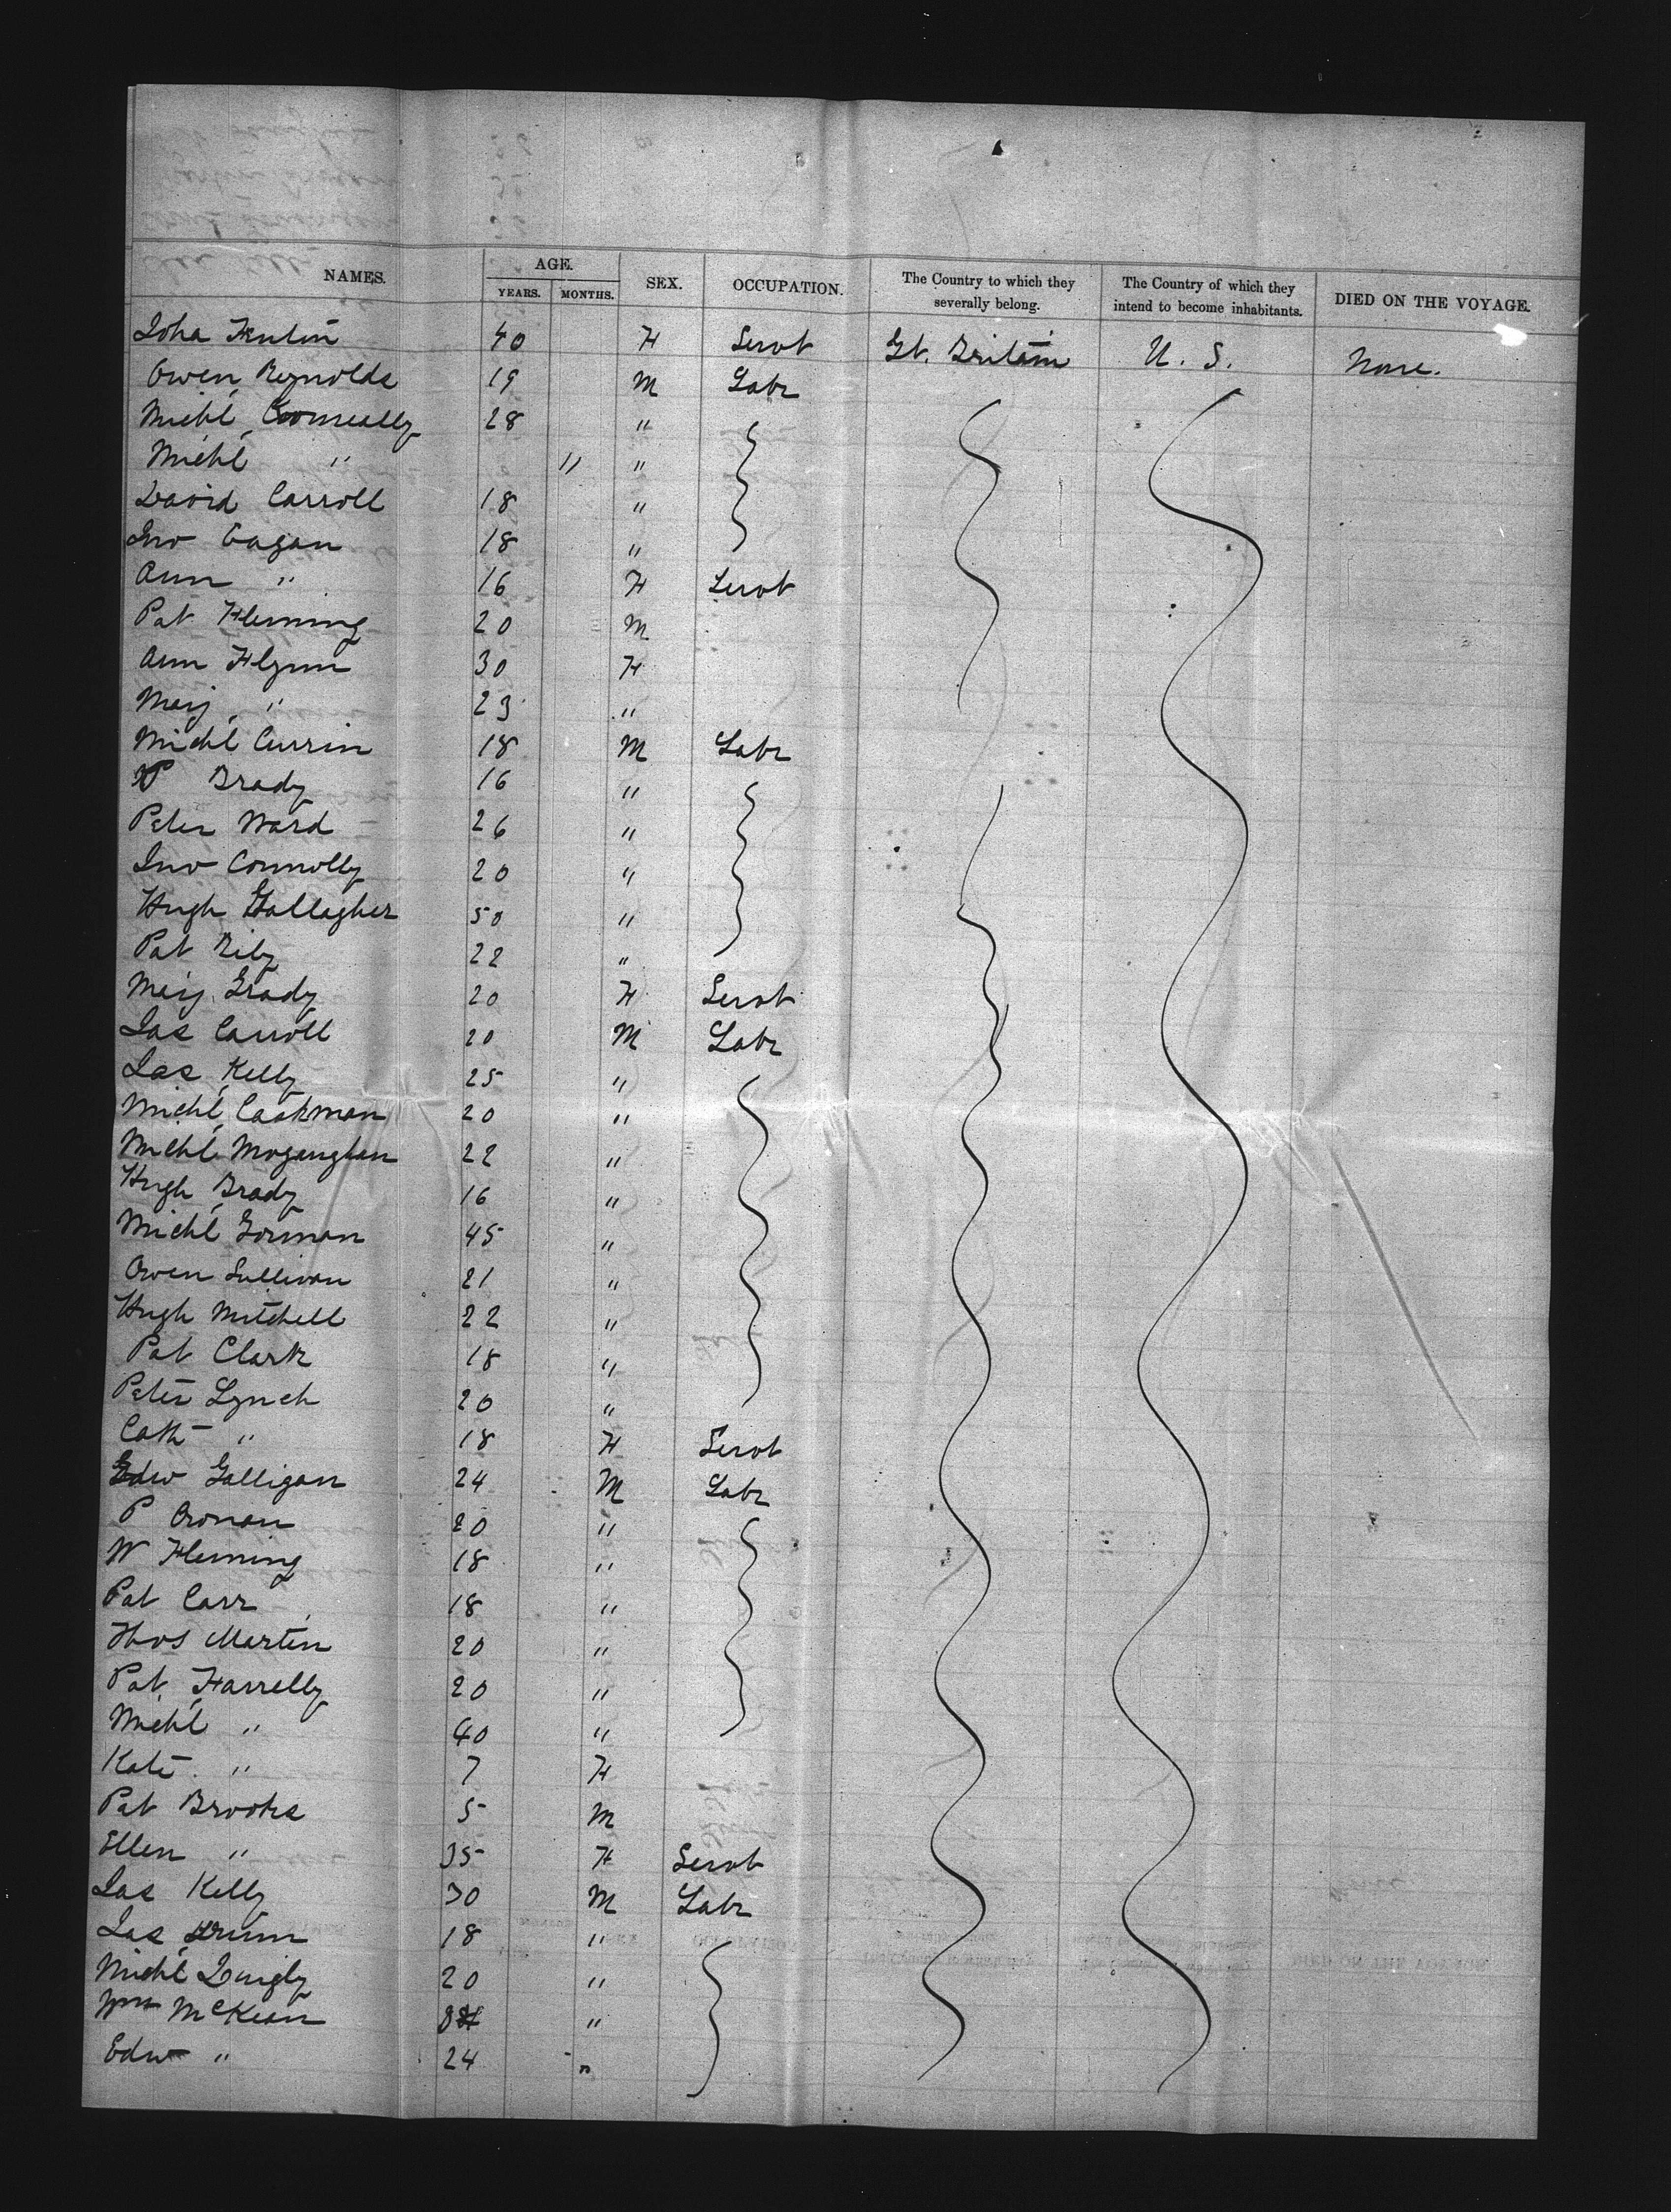 NAMES. AGE. SEX. OCCUPATION. The Country to which they severally belong. The Country of which they intend to become inhabitants. DIED ON THE VOYAGE.
YEARS. MONTHS.
40 F Servt Gt. Britain U. S. None.
Owen Reynolds 19 M Labr
Michl Conneally 28 "
Michl " 11 "
David Carroll 18 "
Jno Eagan 18 "
Ann " 16 F Servt
Pat Fleming 20 M
Ann Flynn 30 F
Marg " 23 "
Michl Currin 18 M Labr
P Brady 16 "
Peter Ward 26 "
Jno Connolly 20 "
Hugh Gallagher 50 "
Pat Rily 22 "
Marg Grady 20 F Servt
Jas Carroll 20 M Labr
Jas Kelly 25 "
Michl Cashman 20 "
Michl Mogaughan 22 "
Hugh Brady 16 "
Michl Gorman 45 "
Owen Sullivan 21 "
Hugh Mitchell 22 "
Pat Clark 18 "
Peter Lynch 20 "
Cath " 18 F Servt
Edw Galligan 24 M Labr
P Cronan 20 "
W Fleming 18 "
Pat Carr 18 "
Thos Martin 20 "
Pat Farrelly 20 "
Michl " 40 "
Kate " 7 F
Pat Brooks 5 M
Ellen " 35 F Servt
Jas Kelly 30 M Labr
Jas 18 "
Michl Quigly 20 "
Wm McKean "
Edw " 24 "